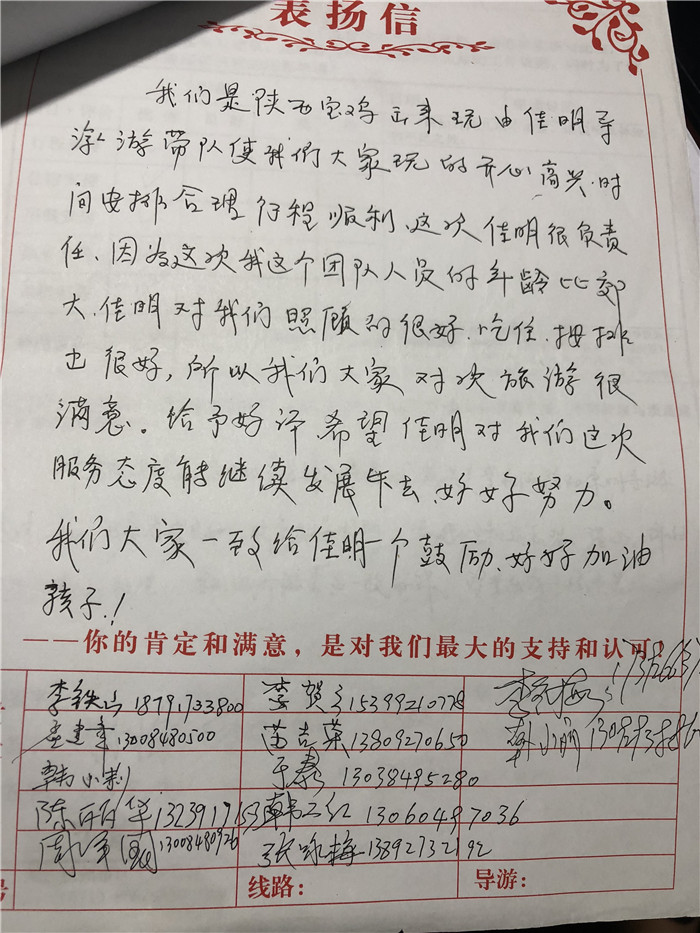 表扬信
我们是陕西宝鸡正来玩由佳明导
游游带队使我们大家玩的开心高兴.时
间安排合理行程顺利、这次佳明很负责
任、因为这次我这个团队人员的年龄比较
大、佳明对我们照顾的很好.吃住.按排
也很好，所以我们大家对次旅游很
满意。给予好评希望佳明对我们这次
服务态度能继续发展下去、好好努力。
我们大家一致给佳明一个鼓励、好好加油
孩子！
——你的肯定和满意，是对我们最大的支持和认可！
李铁山 18791733800 李贺 15399210778
孟建 13008480500 苗吉英 13809270650 韩小丽
韩小莉 于春 13038495280
陈丽华 韩二红 13060497036
周军国 13008480926 张咏梅 13892732192
号 线路： 导游：